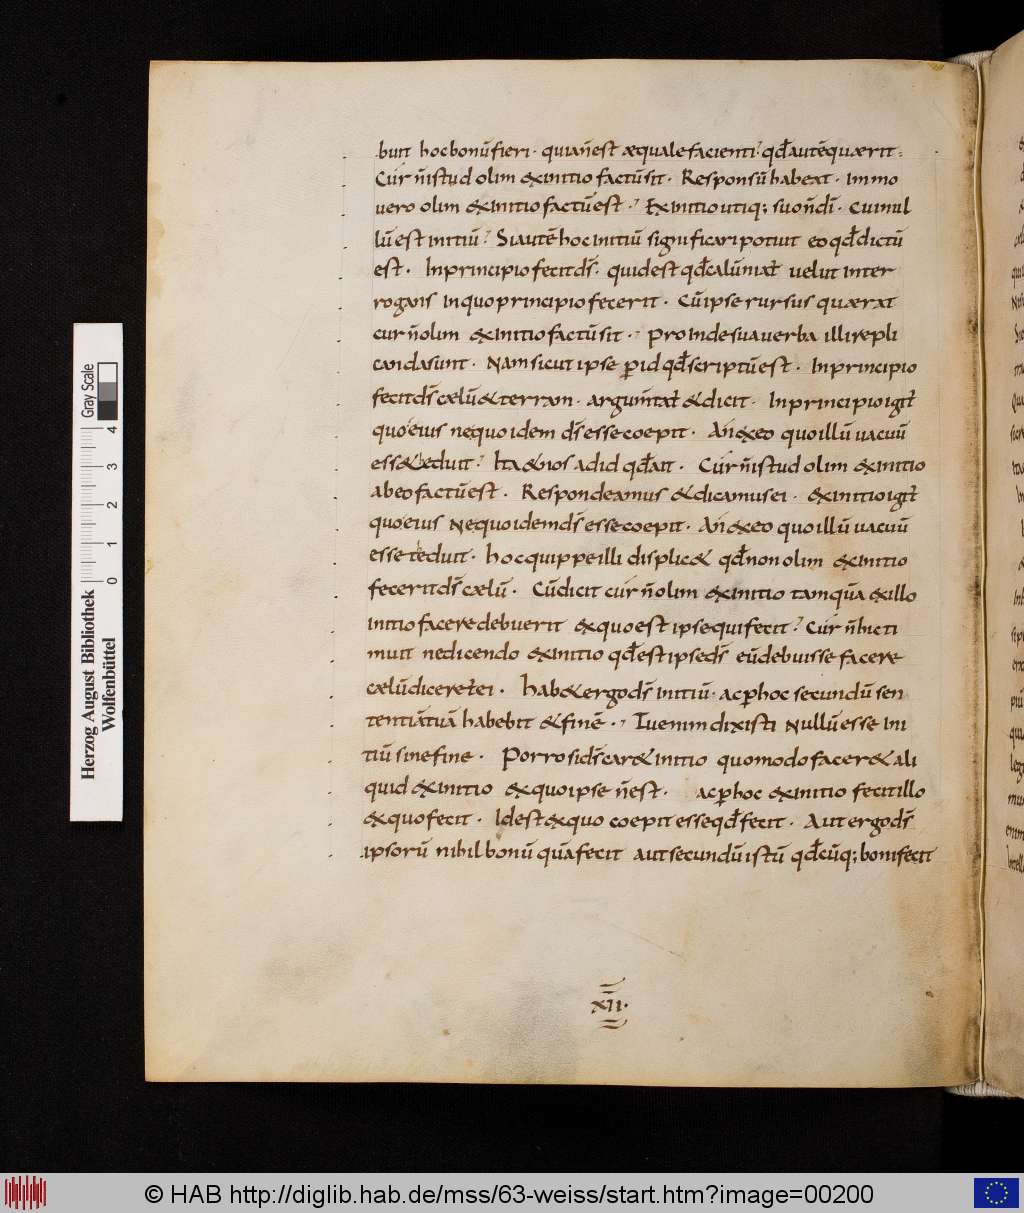 buit hoc bonū fieri · quia n̄ est æquale facienti? qđ autē quærit:
Cur n̄ istud olim & initio factū sit · Responsū habeat · immo
uero olim ex initio factū est · Ex initio utiq; suo n̄ dī · Cui nul
lū est initiū? Si autē hoc initiū significari potuit eo qđ dictū
est · In principio fecit dī · quid est qđ calūniat̄ uelut inter
rogans in quo principio fecerit · Cū ipse rursus quærat
cur n̄ olim ex initio factū sit · Proinde sua uerba illi repli
canda sunt · Nam sicut ipse p̱ id qđ scriptū est · In principio
fecit dī cælū & terram · argum̄tat̄ & dicit · In principio igit̄
quo eius nequo idem dī esse coepit · An ex eo quo illū uacuū
esse teduit? Ita & nos ad id qđ ait · Cur n̄ istud olim ex initio
ab eo factū est · Respondeamus & dicamus ei · ex initio igit̄
quo eius Nequo idem dī esse coepit · An ex eo quo illū uacuū
esse teduit · hoc quippe illi displic& qđ non olim ex initio
fecerit dī cælū · Cū dicit cur n̄ olim ex initio tamquā ex illo
initio facere debuerit ex quo est ipse qui fecit? Cur n̄ hic ti
muit ne dicendo ex initio qđ est ipse dī eū debuisse facere
cælū diceret ei · hab& ergo dī initiū · ac p̱ hoc secundū sen
tentiā tuā habebit & finē · Tu enim dixisti Nullū esse ini
tiū sine fine · Porro si dī car& initio quomodo facer& ali
quid ex initio ex quo ipse n̄ est · ac p̱ hoc ex initio fecit illo
ex quo fecit · Id est ex quo coepit esse qđ fecit · Aut ergo dī
ipsorū nihil bonū quā fecit aut secundū istū qđcūq; boni fecit
XII·
Herzog August Bibliothek
Wolfenbüttel
0 1 2 3 4
Gray Scale
© HAB http://diglib.hab.de/mss/63-weiss/start.htm?image=00200